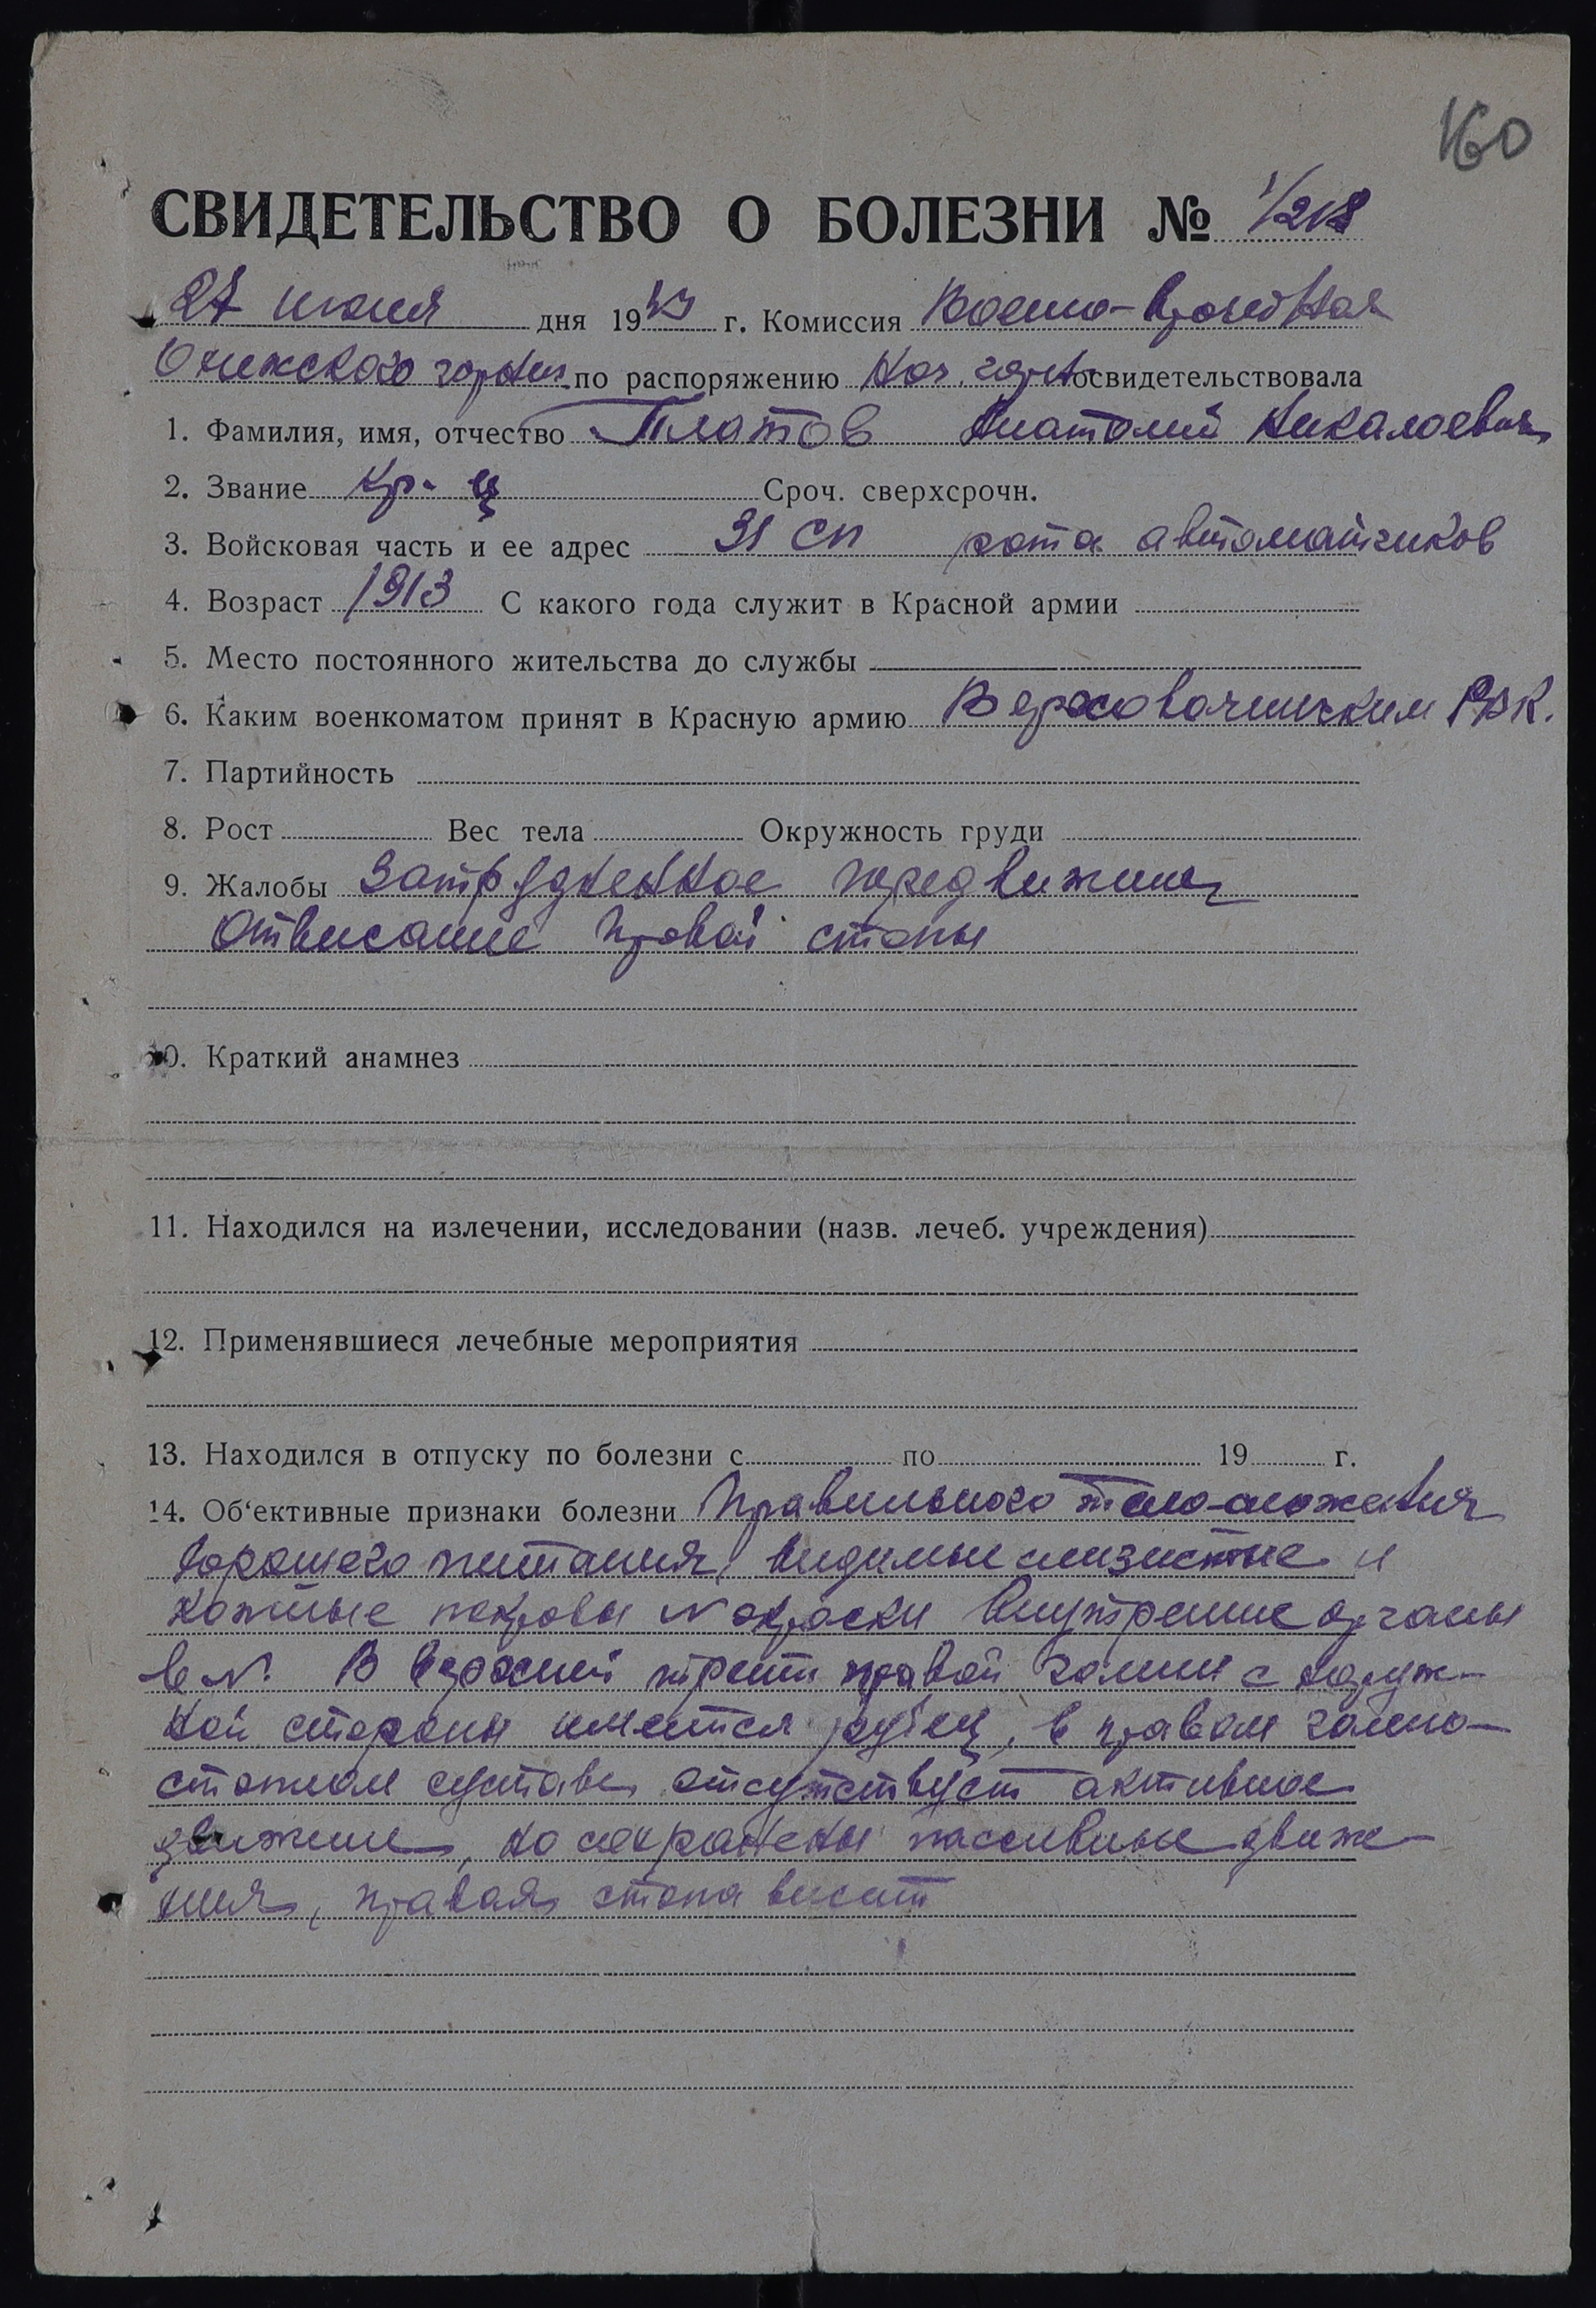 160
СВИДЕТЕЛЬСТВО О БОЛЕЗНИ № 1/218
27 июня дня 1943 г. Комиссия Военно-врачебная
по распоряжению Нач. гарн. освидетельствовала
1. Фамилия, имя, отчество Платов Анатолий Николаевич
2. Звание кр-ц Сроч. сверхсрочн.
3. Войсковая часть и ее адрес 31 сп рота автоматчиков
4. Возраст 1913 С какого года служит в Красной армии
5. Место постоянного жительства до службы
6. Каким военкоматом принят в Красную армию РВК.
7. Партийность
8. Рост Вес тела Окружность груди
9. Жалобы Затрудненное передвижение
отвисание правой стопы
10. Краткий анамнез
11. Находился на излечении, исследовании (назв. лечеб. учреждения)
12. Применявшиеся лечебные мероприятия
13. Находился в отпуску по болезни с по 19 г.
14. Об‘ективные признаки болезни Правильного тело-сложения
хорошего питания, видимые слизистые и
кожные покровы N окраски Внутренние органы
в N. В верхней трети правой голени с наруж-
ной стороны имеется рубец, в правом голено-
стопном суставе отсутствует активное
движение, но сохранены пассивные движе-
ния, правая стопа висит